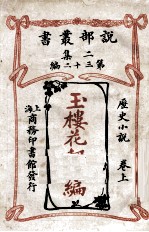 說部叢書
二集
第三十二編
歷史小說 卷上
玉樓花
編
上海商務印書館發行